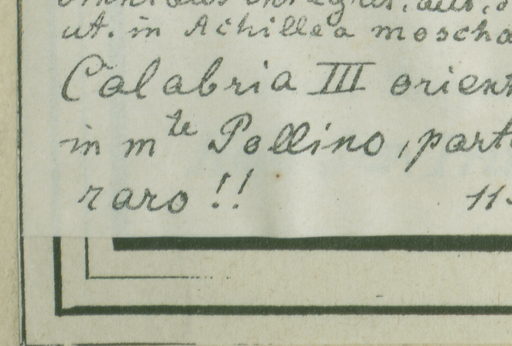 ut. in Achillea moscha
Calabria III orient
in mte Pollino, part
raro !! 11